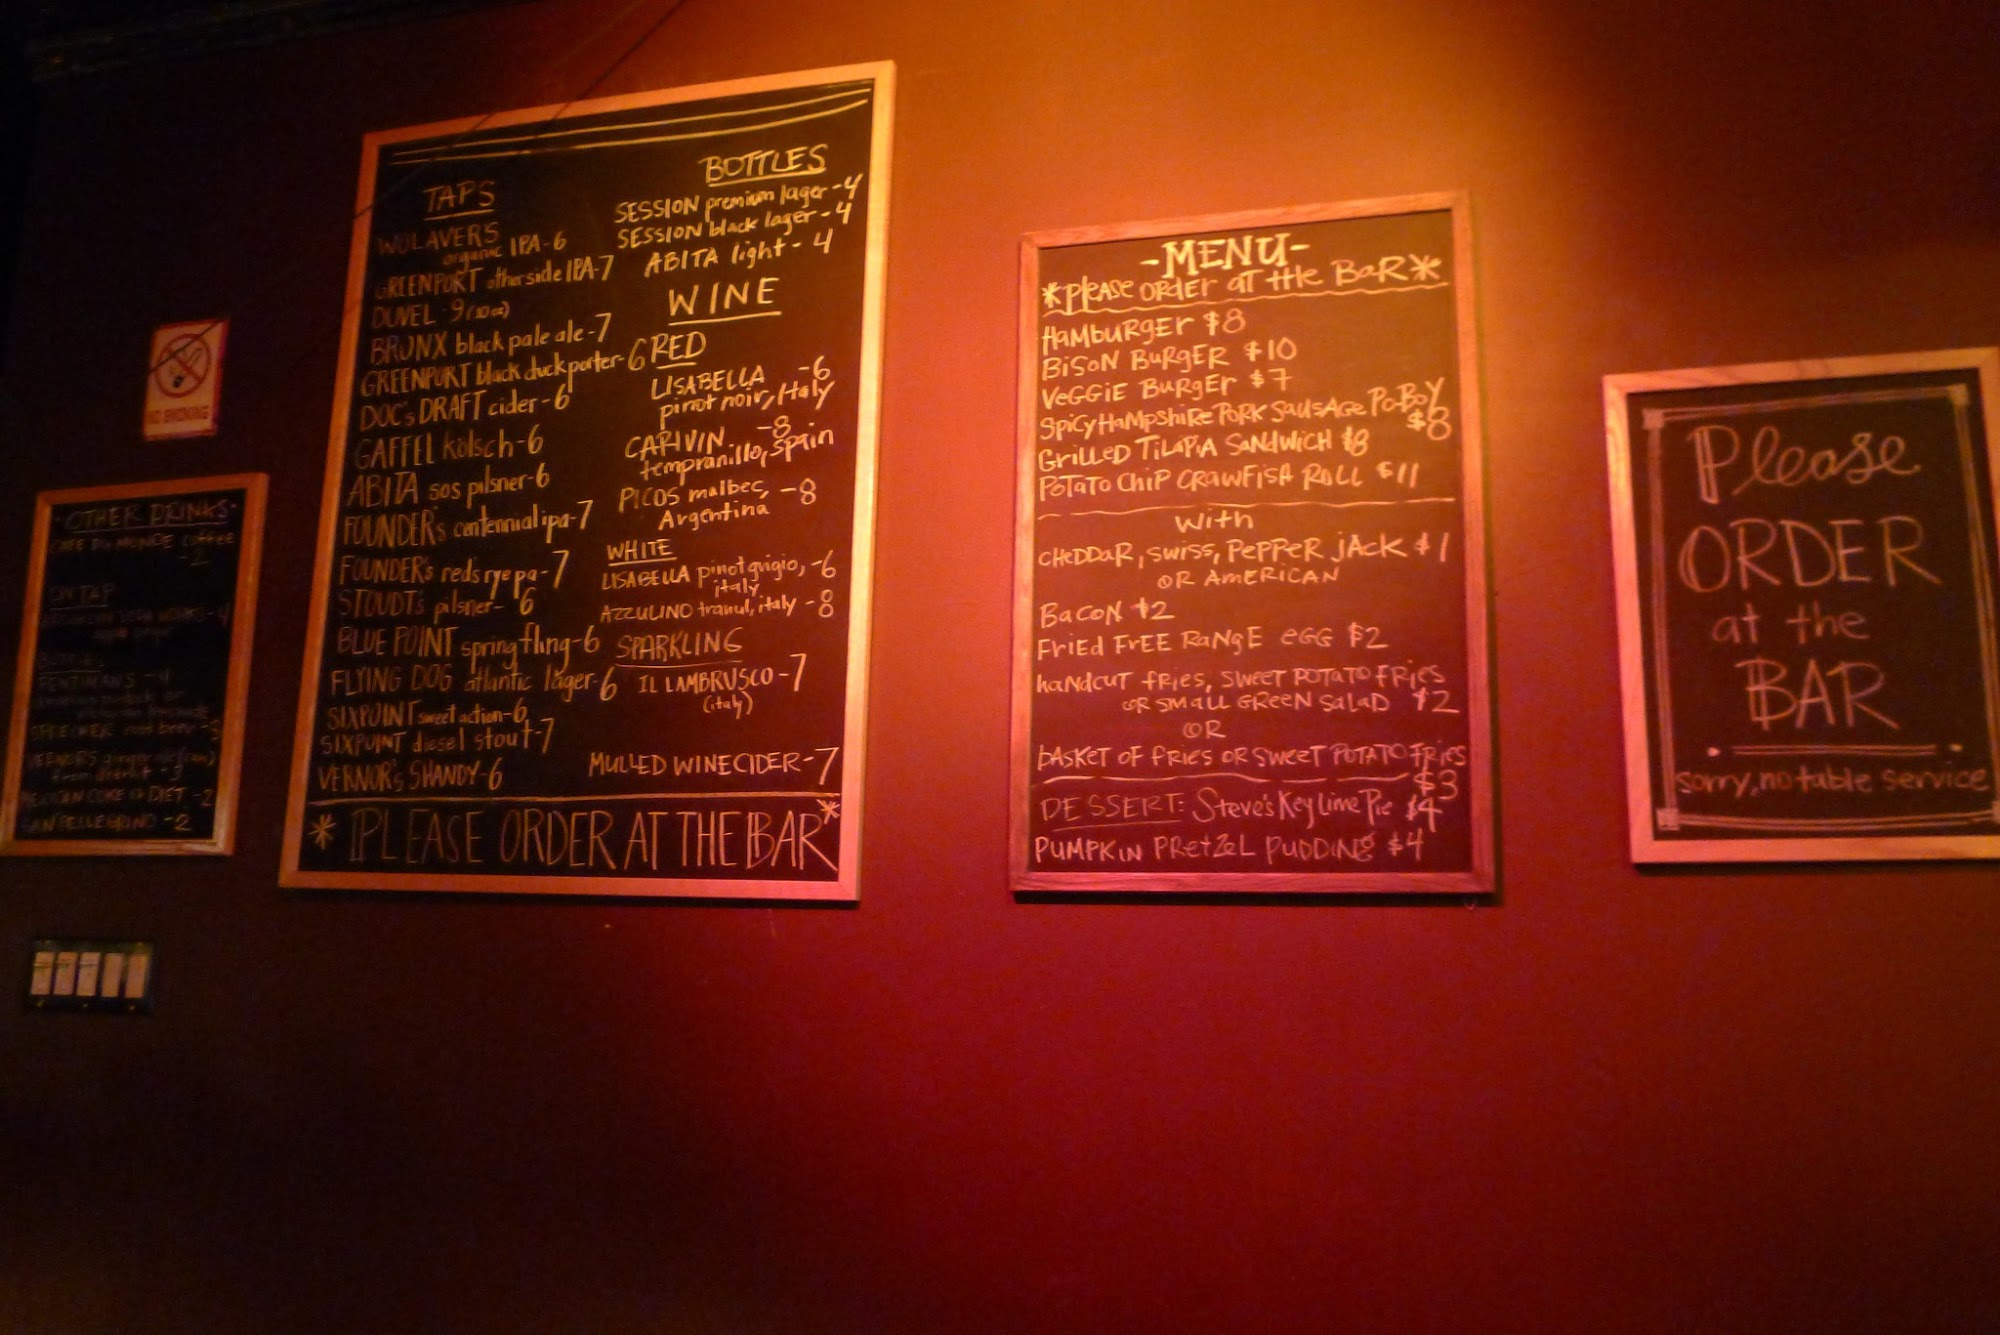 NO SMOKING
OTHER DRINKS
CAFE DU MONDE coffee
-2
ON TAP
-4
BOTTLES
FENTIMANS -4
SPRECHER root beer -3
VERNOR'S ginger ale (can)
from detroit -3
MEXICAN COKE or DIET -2
SAN PELLEGRINO -2
TAPS
WOLAVER'S
organic IPA-6
GREENPORT otherside IPA-7
DUVEL -9 (10oz)
BRONX black pale ale-7
GREENPORT black duck porter-6
DOC'S DRAFT cider-6
GAFFEL kölsch-6
ABITA sos pilsner-6
FOUNDER'S centennial ipa-7
FOUNDER'S reds rye pa-7
STOUDT'S pilsner- 6
BLUE POINT spring fling-6
FLYING DOG atlantic lager-6
SIXPOINT sweet action-6
SIXPOINT diesel stout-7
VERNOR'S SHANDY-6
BOTTLES
SESSION premium lager-4
SESSION black lager-4
ABITA light-4
WINE
RED
LISABELLA -6
pinot noir, Italy
CARIVIN -8
tempranillo, Spain
PICOS malbec, -8
Argentina
WHITE
LISABELLA pinot grigio, -6
italy
AZZULINO tranul, italy -8
SPARKLING
IL LAMBRUSCO-7
(italy)
MULLED WINE CIDER-7
* PLEASE ORDER AT THE BAR *
-MENU-
*Please Order at the Bar*
Hamburger $8
Bison Burger $10
Veggie Burger $7
Spicy Hampshire Pork Sausage Po-Boy
$8
Grilled Tilapia Sandwich $8
Potato Chip Crawfish Roll $11
With
Cheddar, Swiss, Pepper Jack $1
or American
Bacon $2
Fried Free Range Egg $2
Handcut fries, Sweet Potato fries
or Small Green Salad $2
or
Basket of fries or Sweet Potato fries
$3
DESSERT: Steve's Key Lime Pie $4
Pumpkin Pretzel Pudding $4
Please
ORDER
at the
BAR
sorry, no table service